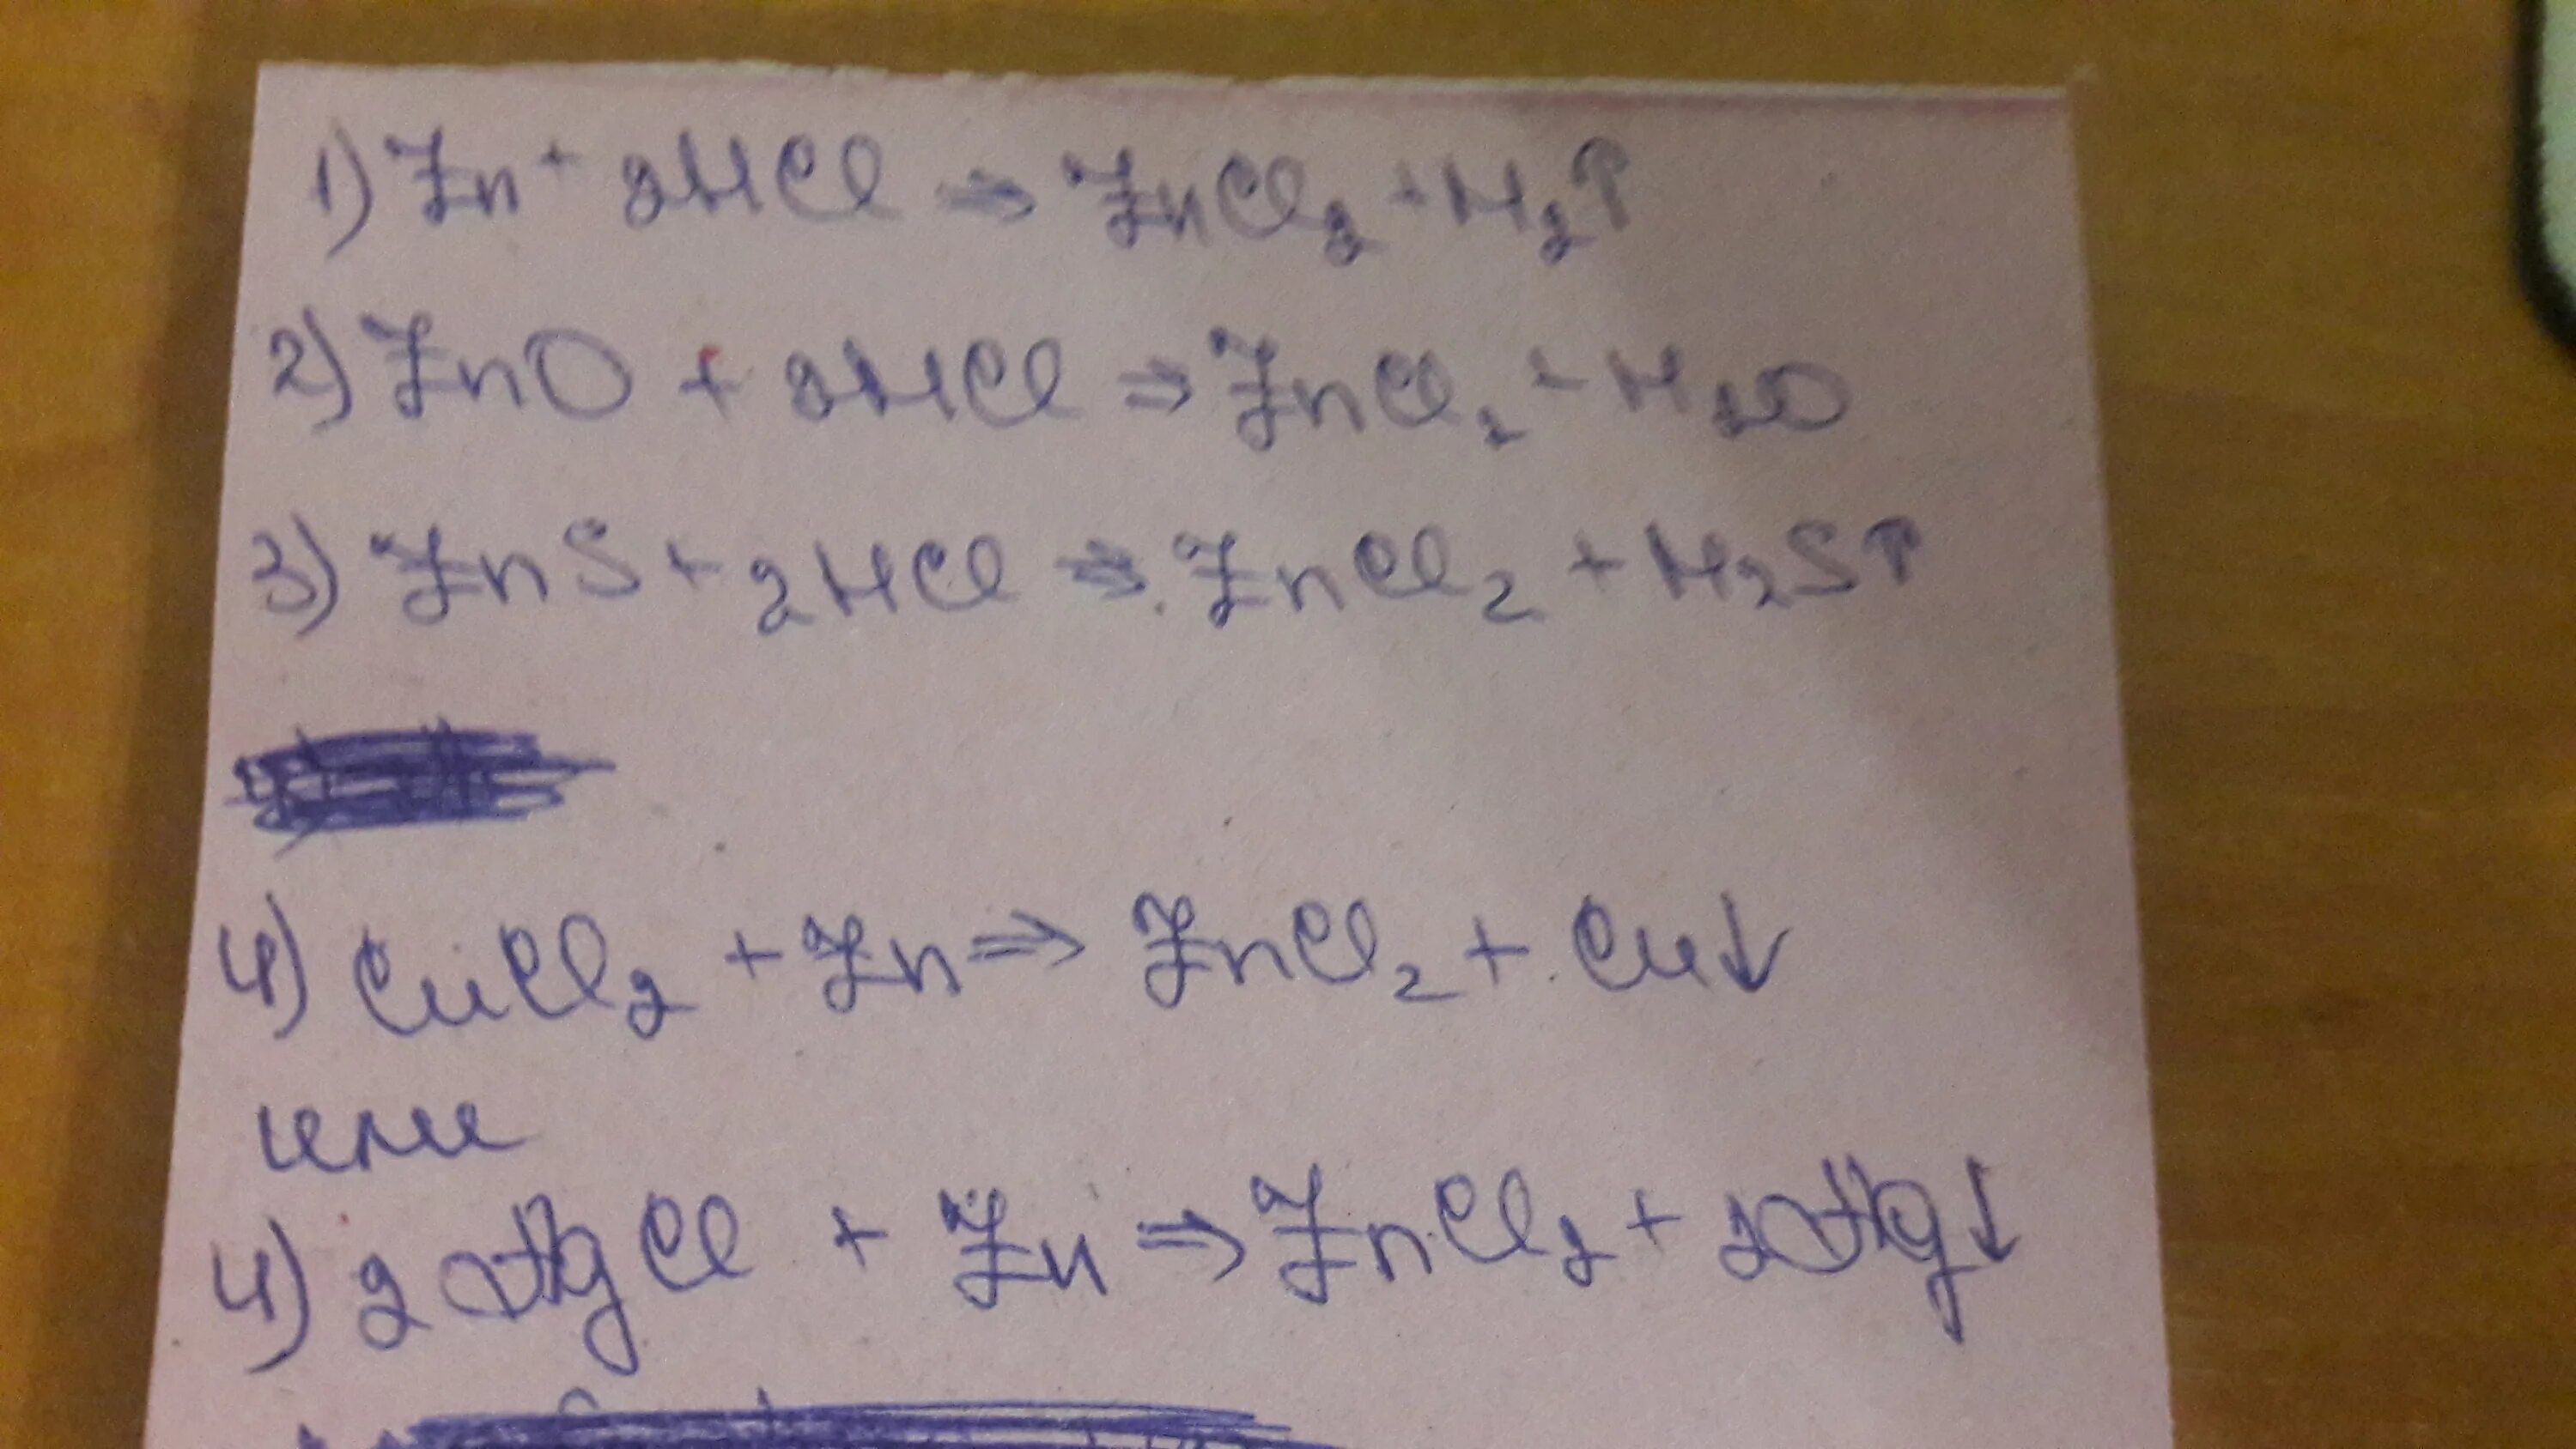 1) Zn + 2HCl ⇒ ZnCl₂ + H₂↑
2) ZnO + 2HCl ⇒ ZnCl₂ + H₂O
3) ZnS + 2HCl ⇒ ZnCl₂ + H₂S↑
4) CuCl₂ + Zn ⇒ ZnCl₂ + Cu↓
или
4) 2AgCl + Zn ⇒ ZnCl₂ + 2Ag↓